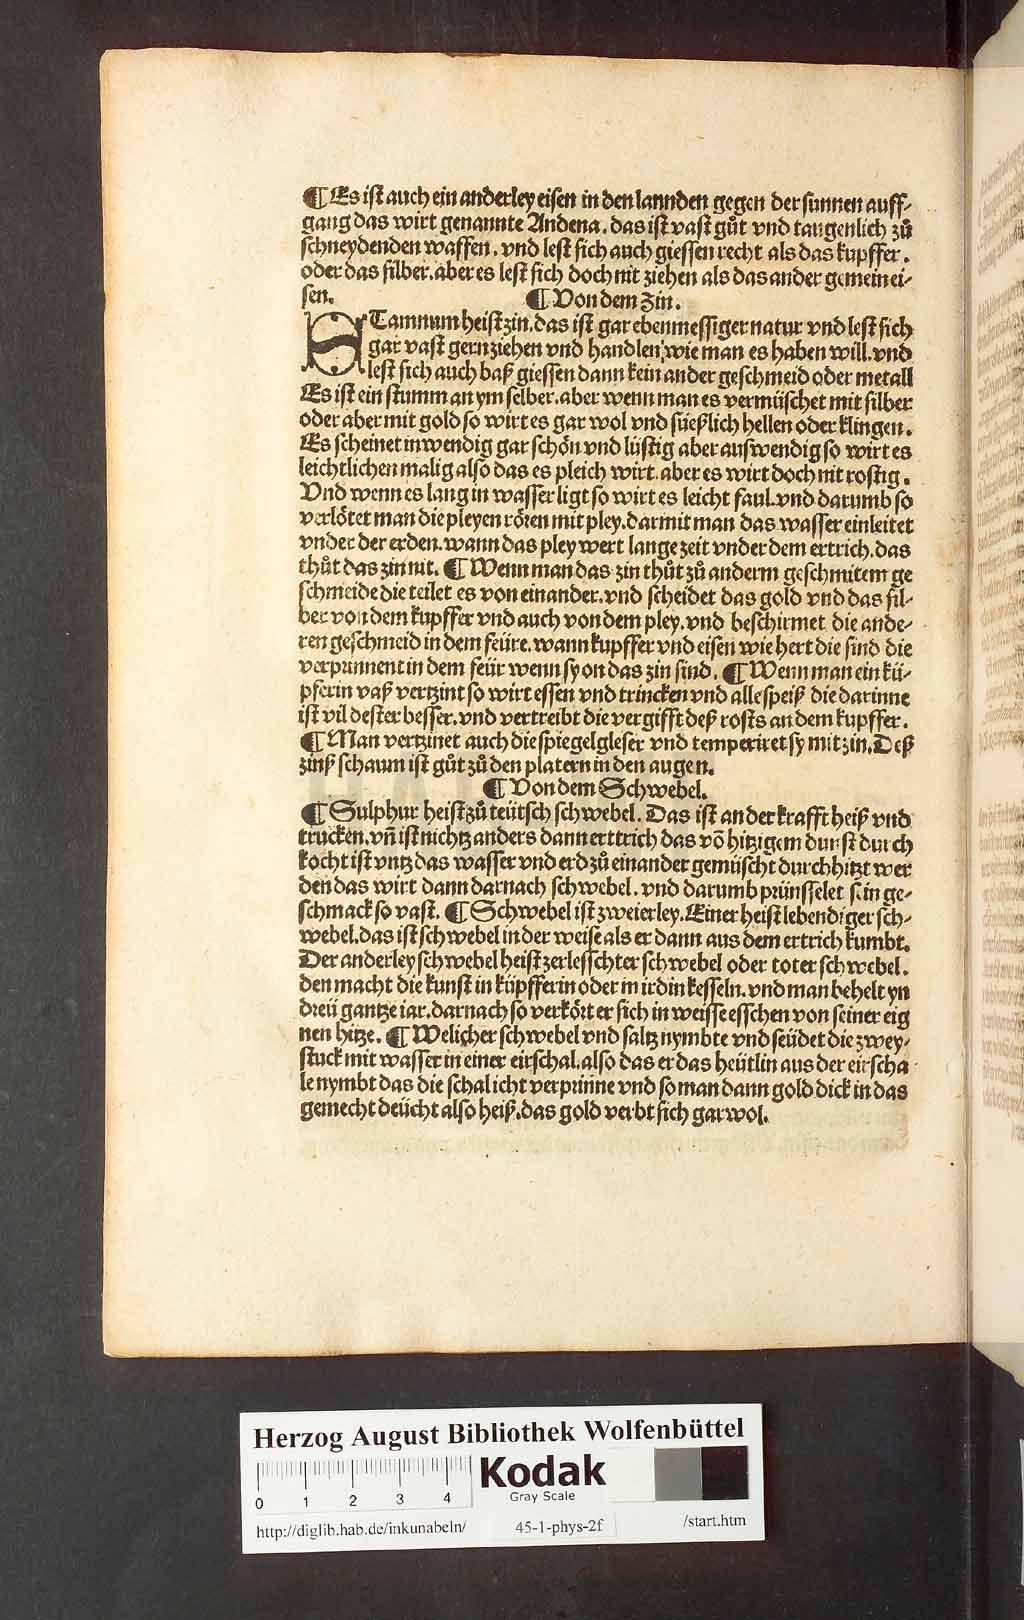 ¶ Es ist auch ein anderley eisen in den lannden gegen der sunnen auff-
gang das wirt genannte Andena. das ist vast gůt vnd taugenlich zů
schneydenden waffen. vnd lest sich auch giessen recht als das kupffer.
oder das silber. aber es lest sich doch nit ziehen als das ander gemein ei-
sen. ¶ Von dem Zin.
STamnum heist zin. das ist gar ebenmessiger natur vnd lest sich
gar vast gern ziehen vnd handlen, wie man es haben will. vnd
lest sich auch baß giessen dann kein ander geschmeid oder metall
Es ist ein stumm an ym selber. aber wenn man es vermüschet mit silber
oder aber mit gold so wirt es gar wol vnd süeßlich hellen oder klingen.
Es scheinet inwendig gar schön vnd lüstig aber auswendig so wirt es
leichtlichen malig also das es pleich wirt. aber es wirt doch nit rostig.
Vnd wenn es lang in wasser ligt so wirt es leicht faul. vnd darumb so
verlötet man die pleyen rören mit pley. darmit man das wasser einleitet
vnder der erden. wann das pley wert lange zeit vnder dem ertrich. das
thůt das zin nit. ¶ Wenn man das zin thůt zů anderm geschmitem ge
schmeide die teilet es von einander. vnd scheidet das gold vnd das sil-
ber von dem kupffer vnd auch von dem pley. vnd beschirmet die ande-
ren geschmeid in dem feüre. wann kupffer vnd eisen wie hert die sind die
verprinnent in dem feür wenn sy on das zin sind. ¶ Wenn man ein kü-
pferin vaß vertzint so wirt essen vnd trincken vnd alle speiß die darinne
ist vil dester besser. vnd vertreibt die vergifft deß rosts an dem kupffer.
¶ Man vertzinet auch die spiegelgleser vnd temperiret sy mit zin. Deß
zinß schaum ist gůt zů den platern in den augen.
¶ Von dem Schwebel.
¶ Sulphur heist zů teütsch schwebel. Das ist an der krafft heiß vnd
trucken. vn̄ ist nichtz anders dann erttrich das vō hitzigem dunst durch
kocht ist vntz das wasser vnd erd zů einander gemüscht durchhitzt wer
den das wirt dann darnach schwebel. vnd darumb prünsselet sein ge-
schmack so vast. ¶ Schwebel ist zweierley. Einer heist lebendiger sch-
webel. das ist schwebel in der weise als er dann aus dem ertrich kumbt.
Der anderley schwebel heist zerlesschter schwebel oder toter schwebel.
den macht die kunst in küpfferin oder in irdin kesseln. vnd man behelt yn
dreü gantze iar. darnach so verkört er sich in weisse esschen von seiner eig
nen hitze. ¶ Welicher schwebel vnd saltz nymbt e vnd seüdet die zwey-
stuck mit wasser in einer eirschal. also das er das heütlin aus der eirscha
le nymbt das die schal icht verprinne vnd so man dann gold dick in das
gemecht deücht also heiß. das gold verbt sich gar wol.
Herzog August Bibliothek Wolfenbüttel
0 1 2 3 4
Kodak
Gray Scale
http://diglib.hab.de/inkunabeln/ 45-1-phys-2f /start.htm